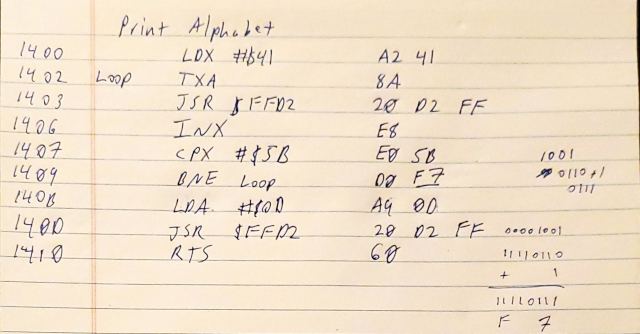 Print Alphabet
1400 LDX #$41 A2 41
1402 Loop TXA 8A
1403 JSR $FFD2 20 D2 FF
1406 INX E8
1407 CPX #$5B E0 5B 1001
1409 BNE Loop D0 F7 0110+1
140B LDA #$0D A9 0D 0111
140D JSR $FFD2 20 D2 FF 00001001
1410 RTS 60 11110110
+ 1
11110111
F 7